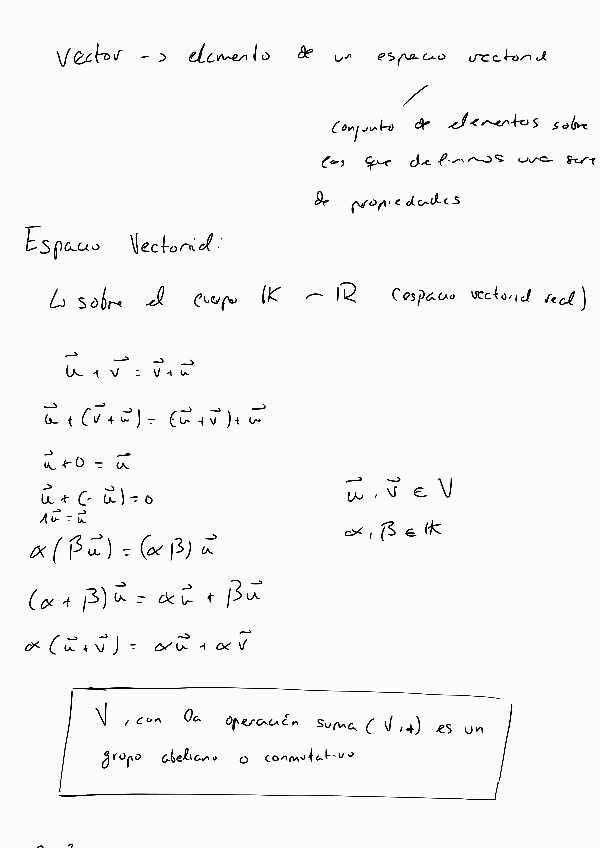 Vector -> elemento de un espacio vectorial
conjunto de elementos sobre
los que definimos una serie
de propiedades
Espacio Vectorial:
↳ sobre el cuerpo K ~ ℝ (espacio vectorial real)
u⃗ + v⃗ = v⃗ + u⃗
u⃗ + (v⃗ + w⃗) = (u⃗ + v⃗) + w⃗
u⃗ + 0 = u⃗
u⃗ + (- u⃗) = 0
u⃗, v⃗ ∈ V
1u⃗ = u⃗
α, β ∈ K
α(βu⃗) = (αβ)u⃗
(α + β)u⃗ = αu⃗ + βu⃗
α(u⃗ + v⃗) = αu⃗ + αv⃗
V, con la operación suma (V,+) es un
grupo abeliano o conmutativo